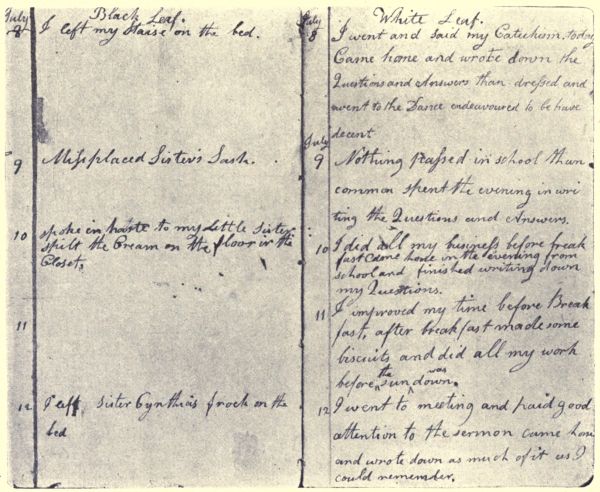 Black Leaf.
July
8 I left my staise on the bed.
9 Missplaced Sister's Sash.
10 spoke in haste to my Little Sister
spilt the Cream on the floor in the
Closet.
11
12 I left Sister Cynthia's frock on the
bed
White Leaf.
July
8 I went and said my Catechism today
Came home and wrote down the
Questions and Answers than dressed and
went to the Dance endeavoured to behave
decent.
July
9 Nothing passed in school than
common spent the evening in wri
ting the Questions and Answers.
10 I did all my business before break
fast Came home in the evening from
school and finished writing down
my Questions.
11 I improved my time before Break
fast, after breakfast made some
biscuits and did all my work
before the sun was down.
12 I went to meeting and paid good
attention to the sermon came home
and wrote down as much of it as I
could remember.